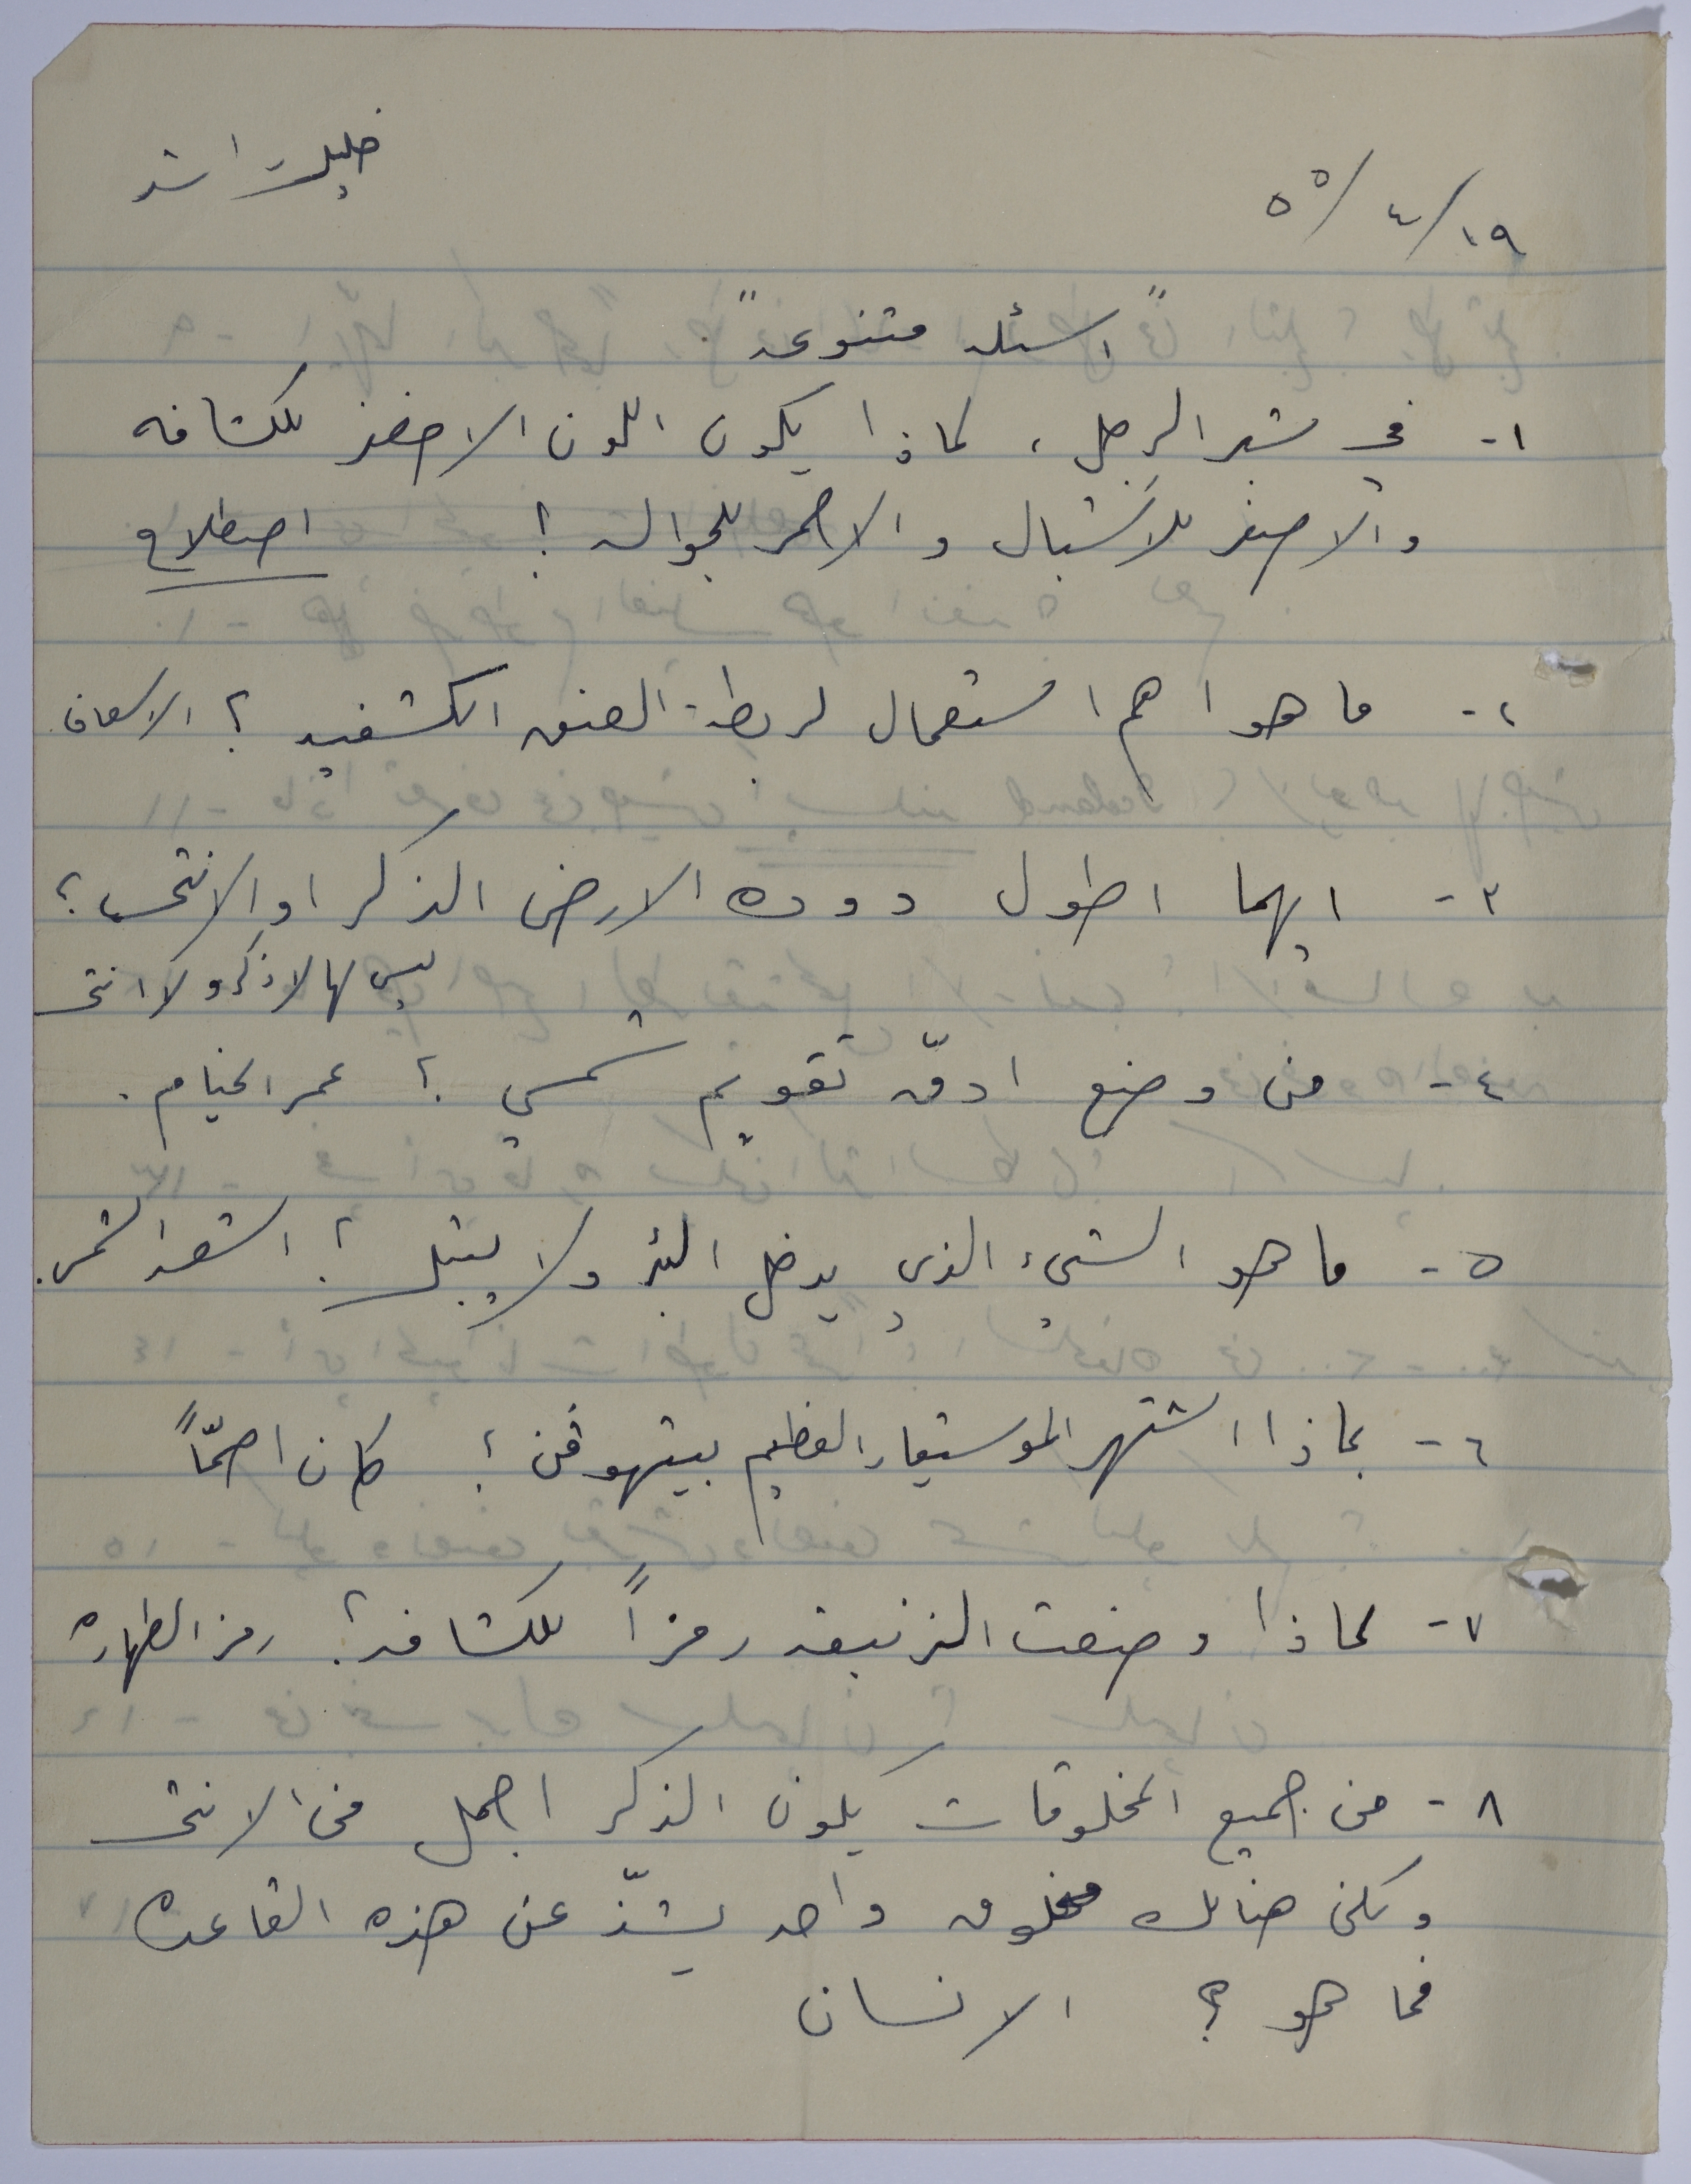 خليل راشد
١٩/٤/٥٥
"اسئله متنوعه"
١- في شبر الرجل، لماذا يكون اللون الاخضر للكشافه
والاصفر للأشبال والاحمر للجواله؟ اصطلاح
٢- ما هو اهم استعمال لربطة العنق الكشفيه؟ الاسعاف.
٣- ايهما اطول دوده الارض الذكر او الانثى؟
ليس لها لا ذكر ولا انثى
٤- من وضع ادقّ تقويم شمسي؟ عمر الخيام.
٥- ما هو الشيء الذي يدخل البئر ولا يبتل؟ اشعة الشمس.
٦- بماذا اشتهر الموسيقار العظيم بيتهوفن؟ كان اصمّاً
٧- لماذا وضعت الزنبقه رمزاً للكشافه؟ رمز الطهاره
٨- من جميع المخلوقات يكون الذكر اجمل من الانثى
ولكن هنالك مخلوق واحد يشذّ عن هذه القاعده
فما هو؟ الانسان